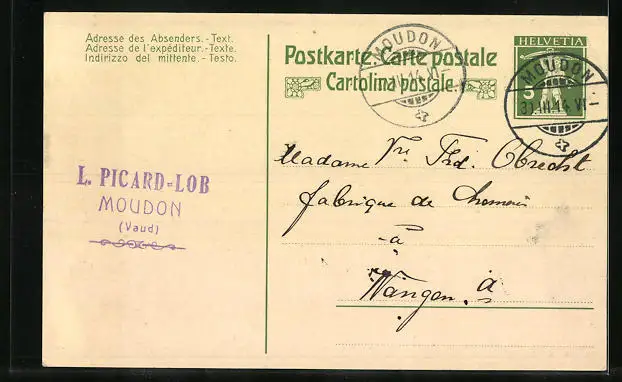 Adresse des Absenders.-Text.
Adresse de l'expéditeur.-Texte.
Indirizzo del mittente.-Testo.
Postkarte. Carte postale
Cartolina postale.
HELVETIA
5
MOUDON
MOUDON
31.III.14.VI-
L. PICARD-LOB
MOUDON
(Vaud)
Madame Vve Frd. Obrecht
fabrique de
à
Wangen a